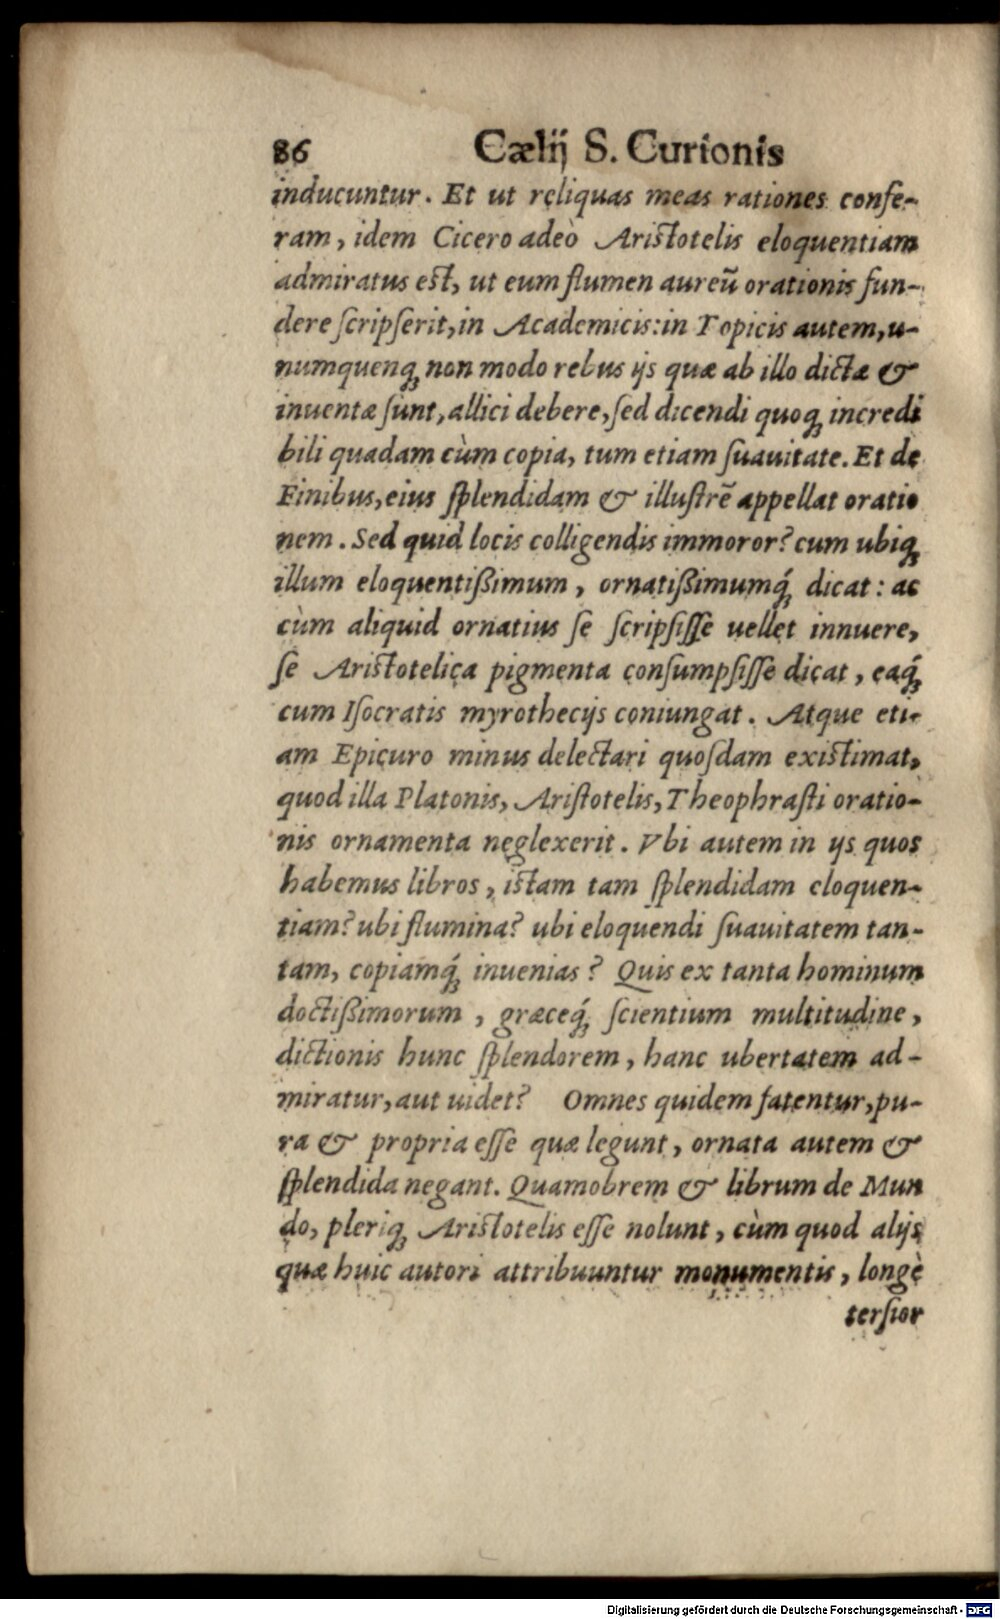 86 Cælij S. Curionis
inducuntur. Et ut reliquas meas rationes confe-
ram, idem Cicero adeò Aristotelis eloquentiam
admiratus est, ut eum flumen aureũ orationis fun-
dere scripserit, in Academicis: in Topicis autem, u-
numquenq́; non modo rebus ijs quæ ab illo dictæ &
inuentæ sunt, allici debere, sed dicendi quoq; incredi
bili quadam cùm copia, tum etiam suauitate. Et de
Finibus, eius splendidam & illustrẽ appellat oratio
nem. Sed quid locis colligendis immoror? cum ubiq;
illum eloquentißimum, ornatißimumq́; dicat: ac
cùm aliquid ornatius se scripsisse uellet innuere,
se Aristotelica pigmenta consumpsisse dicat, eaq́;
cum Isocratis myrothecijs coniungat. Atque eti-
am Epicuro minus delectari quosdam existimat,
quod illa Platonis, Aristotelis, Theophrasti oratio-
nis ornamenta neglexerit. Vbi autem in ijs quos
habemus libros, istam tam splendidam eloquen-
tiam? ubi flumina? ubi eloquendi suauitatem tan-
tam, copiamq́; inuenias? Quis ex tanta hominum
doctißimorum, græceq́; scientium multitudine,
dictionis hunc splendorem, hanc ubertatem ad-
miratur, aut uidet? Omnes quidem fatentur, pu-
ra & propria esse quæ legunt, ornata autem &
splendida negant. Quamobrem & librum de Mun
do, pleriq; Aristotelis esse nolunt, cùm quod alijs
quæ huic autori attribuuntur monumentis, longè
tersior
Digitalisierung gefördert durch die Deutsche Forschungsgemeinschaft - DFG